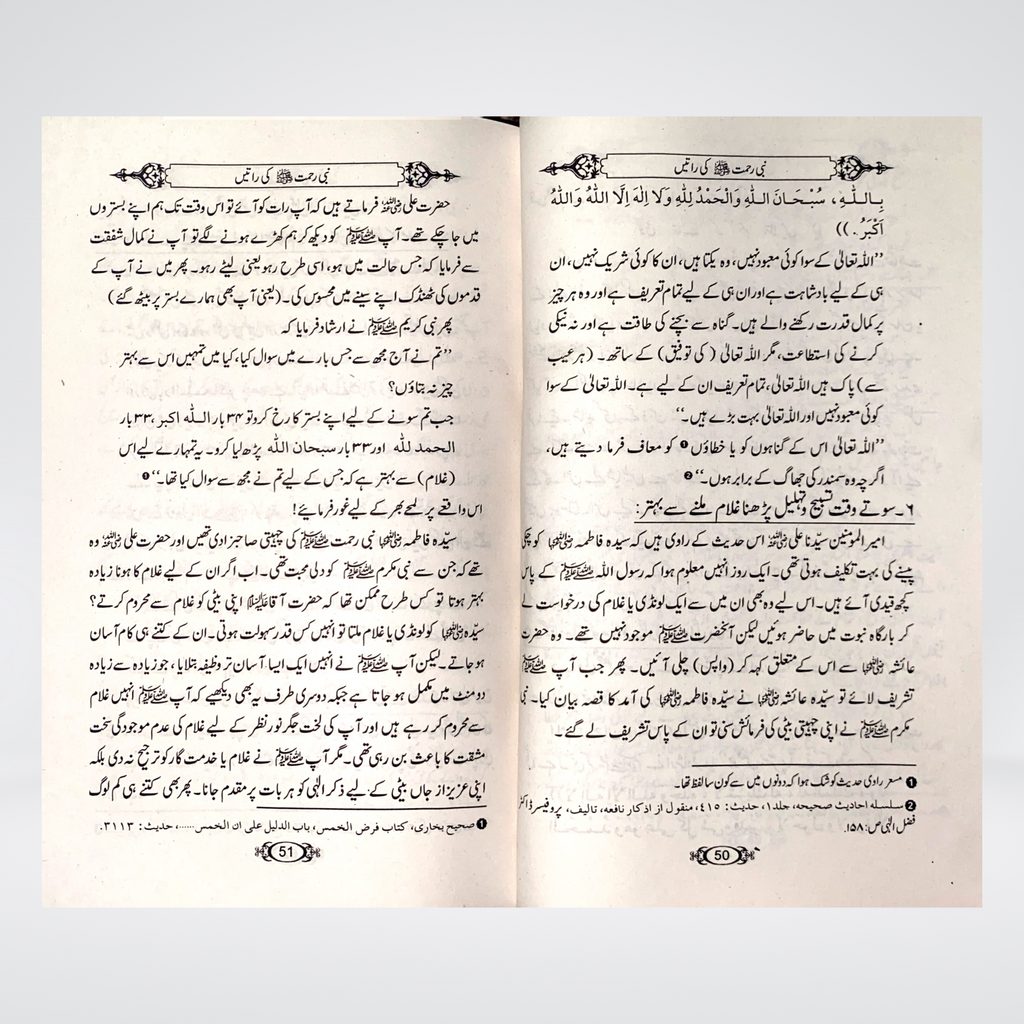 نبی رحمت ﷺ کی راتیں
بِاللّٰهِ، سُبْحَانَ اللّٰهِ وَالْحَمْدُ لِلّٰهِ وَلَا اِلٰهَ اِلَّا اللّٰهُ وَاللّٰهُ
اَكْبَرُ.))
’’اللہ تعالیٰ کے سوا کوئی معبود نہیں، وہ یکتا ہیں، ان کا کوئی شریک نہیں، ان
ہی کے لیے بادشاہت ہے اور ان ہی کے لیے تمام تعریف ہے اور وہ ہر چیز
پر کمال قدرت رکھنے والے ہیں۔ گناہ سے بچنے کی طاقت ہے اور نہ نیکی
کرنے کی استطاعت، مگر اللہ تعالیٰ (کی توفیق) کے ساتھ۔ (ہر عیب
سے) پاک ہیں اللہ تعالیٰ، تمام تعریف ان کے لیے ہے۔ اللہ تعالیٰ کے سوا
کوئی معبود نہیں اور اللہ تعالیٰ بہت بڑے ہیں۔‘‘
’’اللہ تعالیٰ اس کے گناہوں کو یا خطاؤں ❶ کو معاف فرما دیتے ہیں،
اگرچہ وہ سمندر کی جھاگ کے برابر ہوں۔‘‘ ❷
۶۔ سوتے وقت تسبیح و تہلیل پڑھنا غلام ملنے سے بہتر:
امیر المومنین سیّدنا علی رضی اللہ عنہ اس حدیث کے راوی ہیں کہ سیدہ فاطمہ رضی اللہ عنہا کو چکی
پیسنے کی بہت تکلیف ہوتی تھی۔ ایک روز انہیں معلوم ہوا کہ رسول اللہ ﷺ کے پاس
کچھ قیدی آئے ہیں۔ اس لیے وہ بھی ان میں سے ایک لونڈی یا غلام کی درخواست لے
کر بارگاہ نبوت میں حاضر ہوئیں لیکن آنحضرت ﷺ موجود نہیں تھے۔ وہ حضرت
عائشہ رضی اللہ عنہا سے اس کے متعلق کہہ کر (واپس) چلی آئیں۔ پھر جب آپ ﷺ
تشریف لائے تو سیّدہ عائشہ رضی اللہ عنہا نے سیّدہ فاطمہ رضی اللہ عنہا کی آمد کا قصہ بیان کیا۔ نبی
مکرم ﷺ نے اپنی چہیتی بیٹی کی فرمائش سنی تو ان کے پاس تشریف لے گئے۔
❶ مسعر راوی حدیث کو شک ہوا کہ دونوں میں سے کون سا لفظ تھا۔
❷ سلسلہ احادیث صحیحہ، جلد ۱، حدیث: ٤١٥، منقول از اذکار نافعہ، تالیف، پروفیسر ڈاکٹر
فضل الٰہی ص: ۱۵۸۔
50
نبی رحمت ﷺ کی راتیں
حضرت علی رضی اللہ عنہ فرماتے ہیں کہ آپ رات کو آئے تو اس وقت تک ہم اپنے بستروں
میں جا چکے تھے۔ آپ ﷺ کو دیکھ کر ہم کھڑے ہونے لگے تو آپ نے کمال شفقت
سے فرمایا کہ جس حالت میں ہو، اسی طرح رہو یعنی لیٹے رہو۔ پھر میں نے آپ کے
قدموں کی ٹھنڈک اپنے سینے میں محسوس کی۔ (یعنی آپ بھی ہمارے بستر پر بیٹھ گئے)
پھر نبی کریم ﷺ نے ارشاد فرمایا کہ
’’تم نے آج مجھ سے جس بارے میں سوال کیا، کیا میں تمہیں اس سے بہتر
چیز نہ بتاؤں؟
جب تم سونے کے لیے اپنے بستر کا رخ کرو تو ۳۴ بار اللہ اکبر، ۳۳ بار
الحمد للہ اور ۳۳ بار سبحان اللہ پڑھ لیا کرو۔ یہ تمہارے لیے اس
(غلام) سے بہتر ہے کہ جس کے لیے تم نے مجھ سے سوال کیا تھا۔‘‘ ❶
اس واقعے پر لمحے بھر کے لیے غور فرمائیے!
سیّدہ فاطمہ رضی اللہ عنہا نبی رحمت ﷺ کی چہیتی صاحبزادی تھیں اور حضرت علی رضی اللہ عنہ وہ
تھے کہ جن سے نبی مکرم ﷺ کو دلی محبت تھی۔ اب اگر ان کے لیے غلام کا ہونا زیادہ
بہتر ہوتا تو کس طرح ممکن تھا کہ حضرت آقا علیہ السلام اپنی بیٹی کو غلام سے محروم کرتے؟
سیّدہ رضی اللہ عنہا کو لونڈی یا غلام ملتا تو انہیں کس قدر سہولت ہوتی۔ ان کے کتنے ہی کام آسان
ہو جاتے۔ لیکن آپ ﷺ نے انہیں ایک ایسا آسان تر وظیفہ بتلایا، جو زیادہ سے زیادہ
دو منٹ میں مکمل ہو جاتا ہے جبکہ دوسری طرف یہ بھی دیکھیے کہ آپ ﷺ انہیں غلام
سے محروم کر رہے ہیں اور آپ کی لخت جگر نور نظر کے لیے غلام کی عدم موجودگی سخت
مشقت کا باعث بن رہی تھی۔ مگر آپ ﷺ نے غلام یا خدمت گار کو ترجیح نہ دی بلکہ
اپنی عزیز از جاں بیٹی کے لیے ذکر الٰہی کو ہر بات پر مقدم جانا۔ پھر بھی کتنے ہی کم لوگ
❶ صحیح بخاری، کتاب فرض الخمس، باب الدلیل علی ان الخمس......، حدیث: ۳۱۱۳.
51